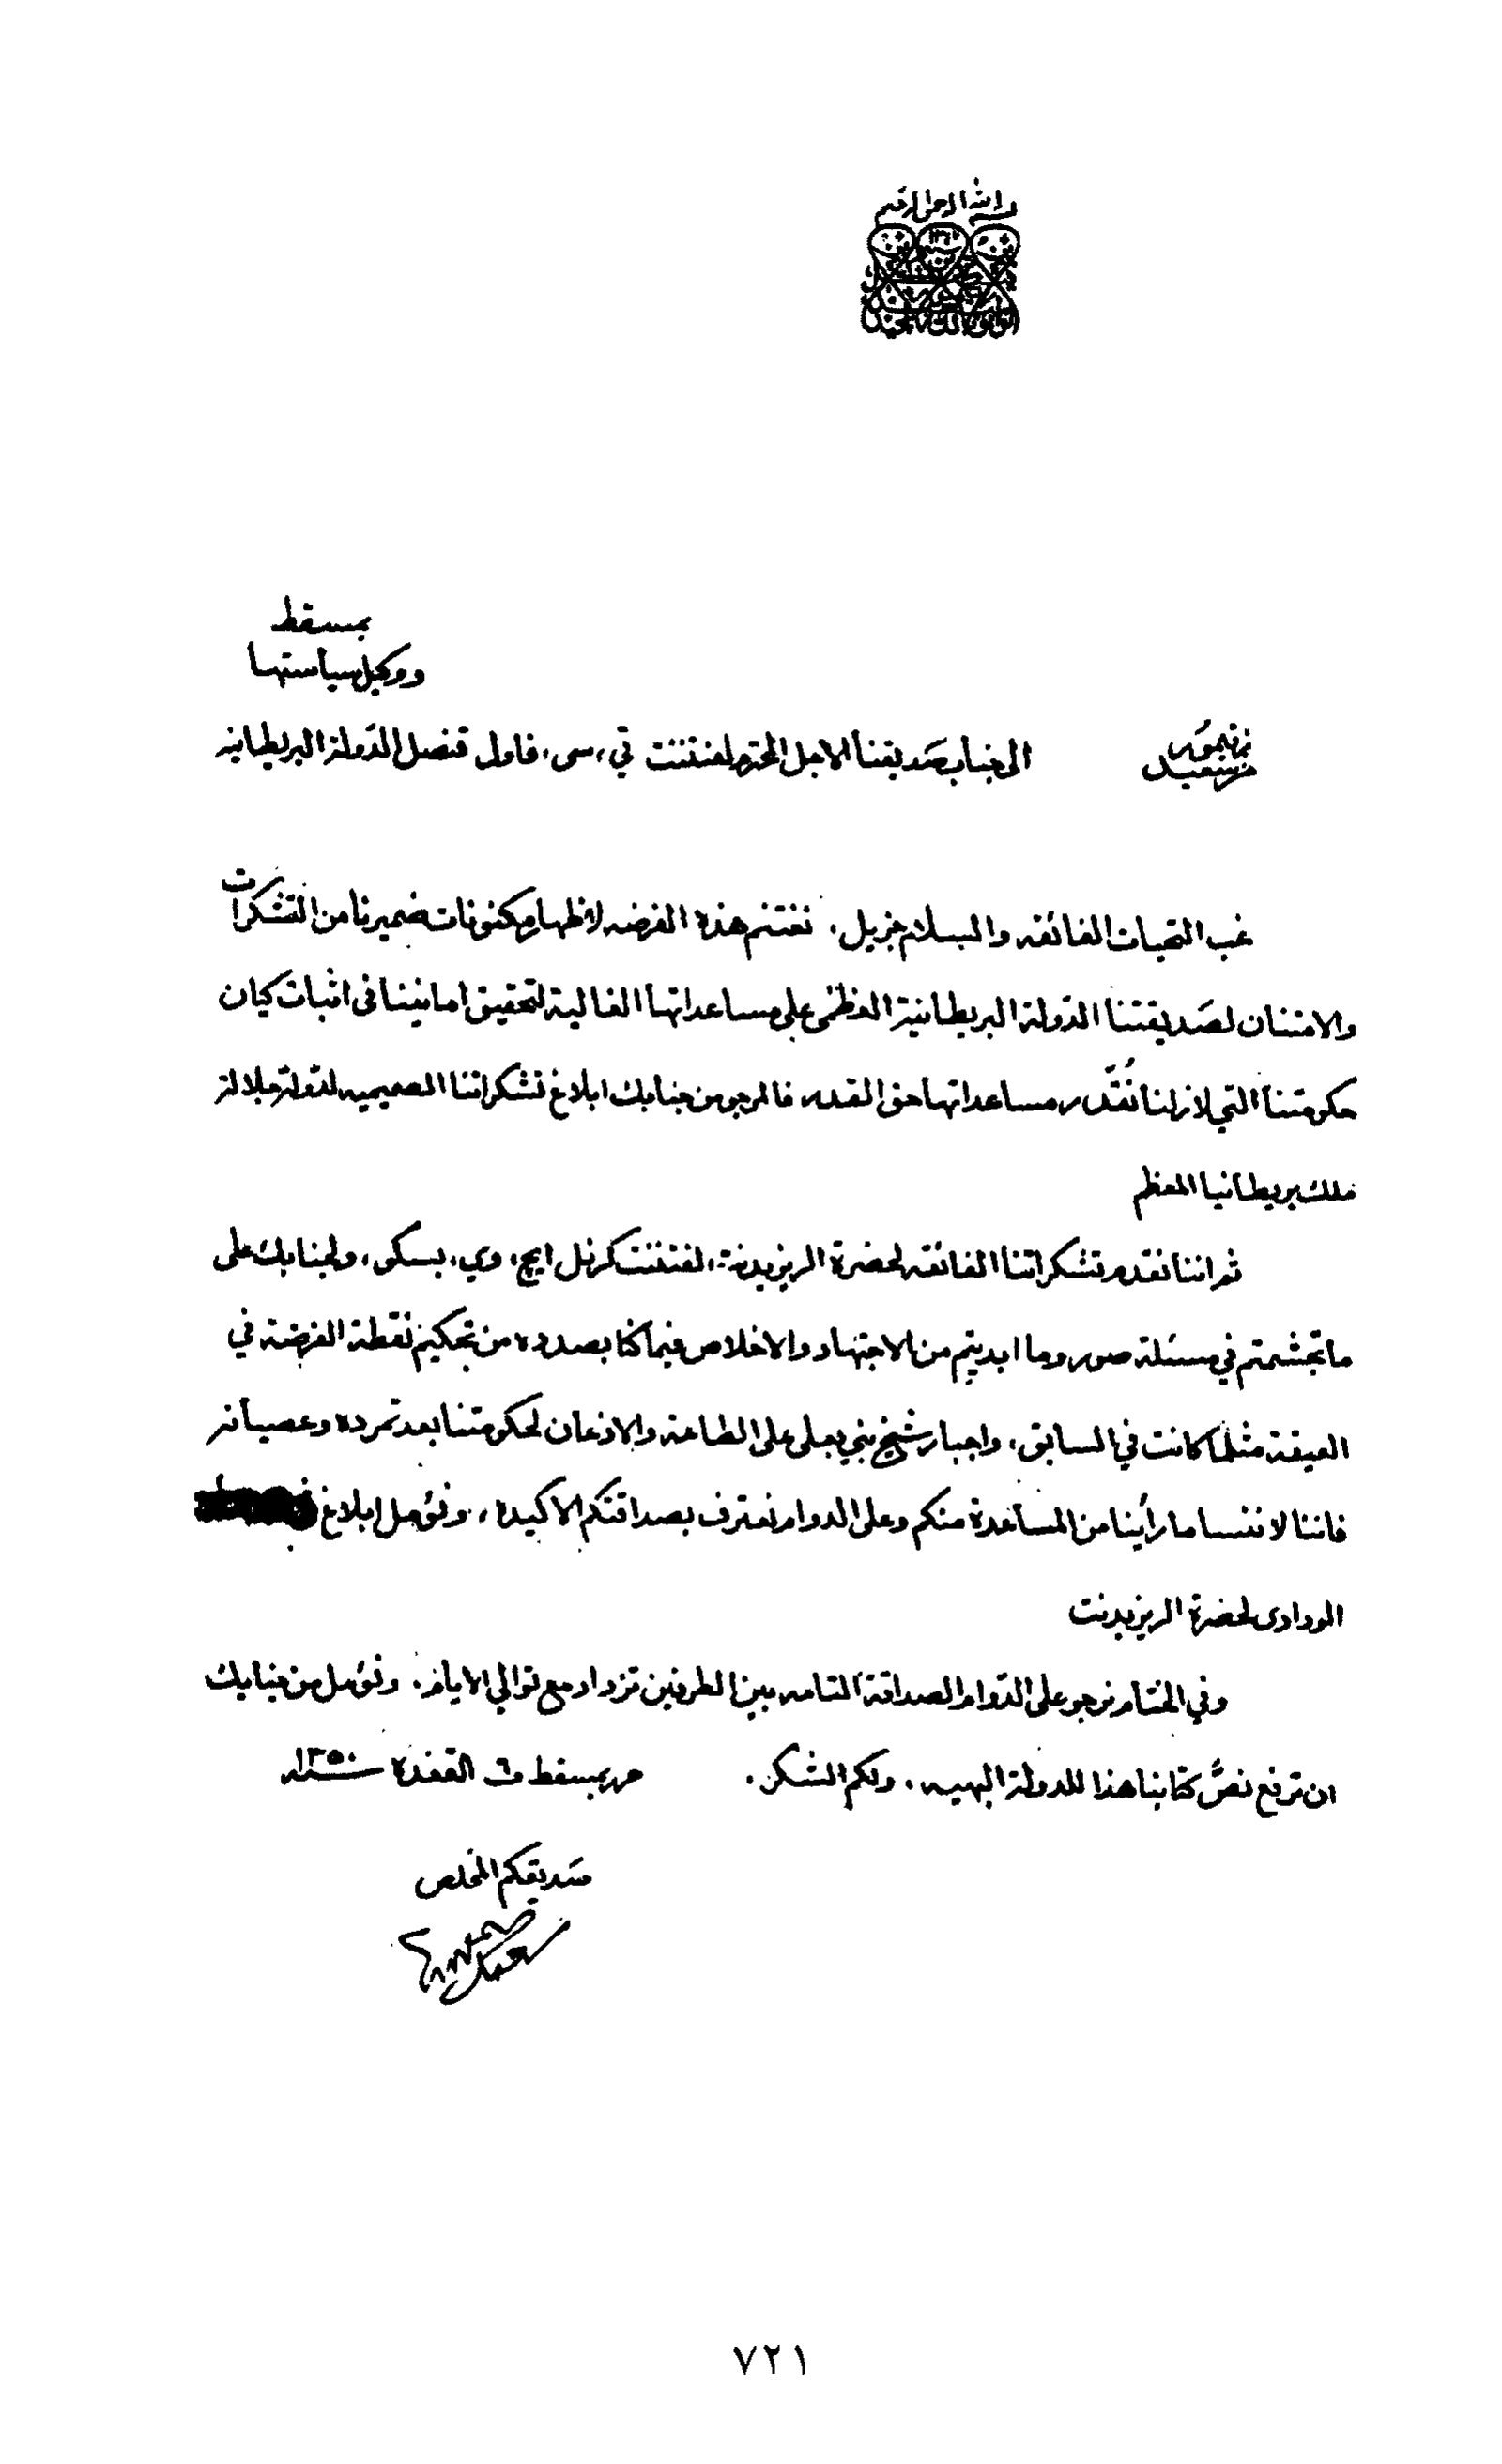 من سعيد بن تيمور
الى جناب صَديقنا الاجل المحترم لفتننت تي، سي، فاول قنصل الدَولة البريطانيه
ووكيل سياستها
بمسقط
غب التحيات الفائقه والسلام جزيل. نغتنم هذه الفرصه لاظهار مكنونات ضميرنا من التشكرات
والامتنان لصَديقتنا الدَولة البريطانية العظمٰى على مساعداتها الغالية لتحقيق امانينا فى اثبات كيان
حكومتنا التي لازلنا نُقَدّر مساعداتها حق القدر فالمرجو من جنابك ابلاغ تشكراتنا الصميميه لدَولة جلالة
ملك بريطانيا المعظم
ثم اننا نقدم تشكراتنا الفائقه لحضرة الريزيدنت، لفتننت كرنل ايچ، وي، بسكو، ولجنابك على
ما تجشمتم في مسئلة صور وما ابديتم من الاجتهاد والاخلاص فيما كنا بصدده من تحكيم نقطة الفرضة في
العيقة مثلما كانت في السابق، واجبار شيخ بني بوعلى على الطاعة والاذعان لحكومتنا بعد تمرده وعصيانه
فاننا لا ننسا ما رأينا من المساعدة منكم وعلى الدوام نعترف بصداقتكم الاكيدا، ونؤمل ابلاغ
الودادى لحضرة الريزيدنت
وفي الختام نرجو على الدَوام الصداقة التامه بين الطرفين تزداد مع توالي الايام. ونؤمل من جنابك
ان ترفع نصَّ كتابنا هذا للدولة البهيه. ولكم الشكر. حرر بمسقط القعدة سنة ١٣٥٠
صَديقكم المخلص
٧٢١